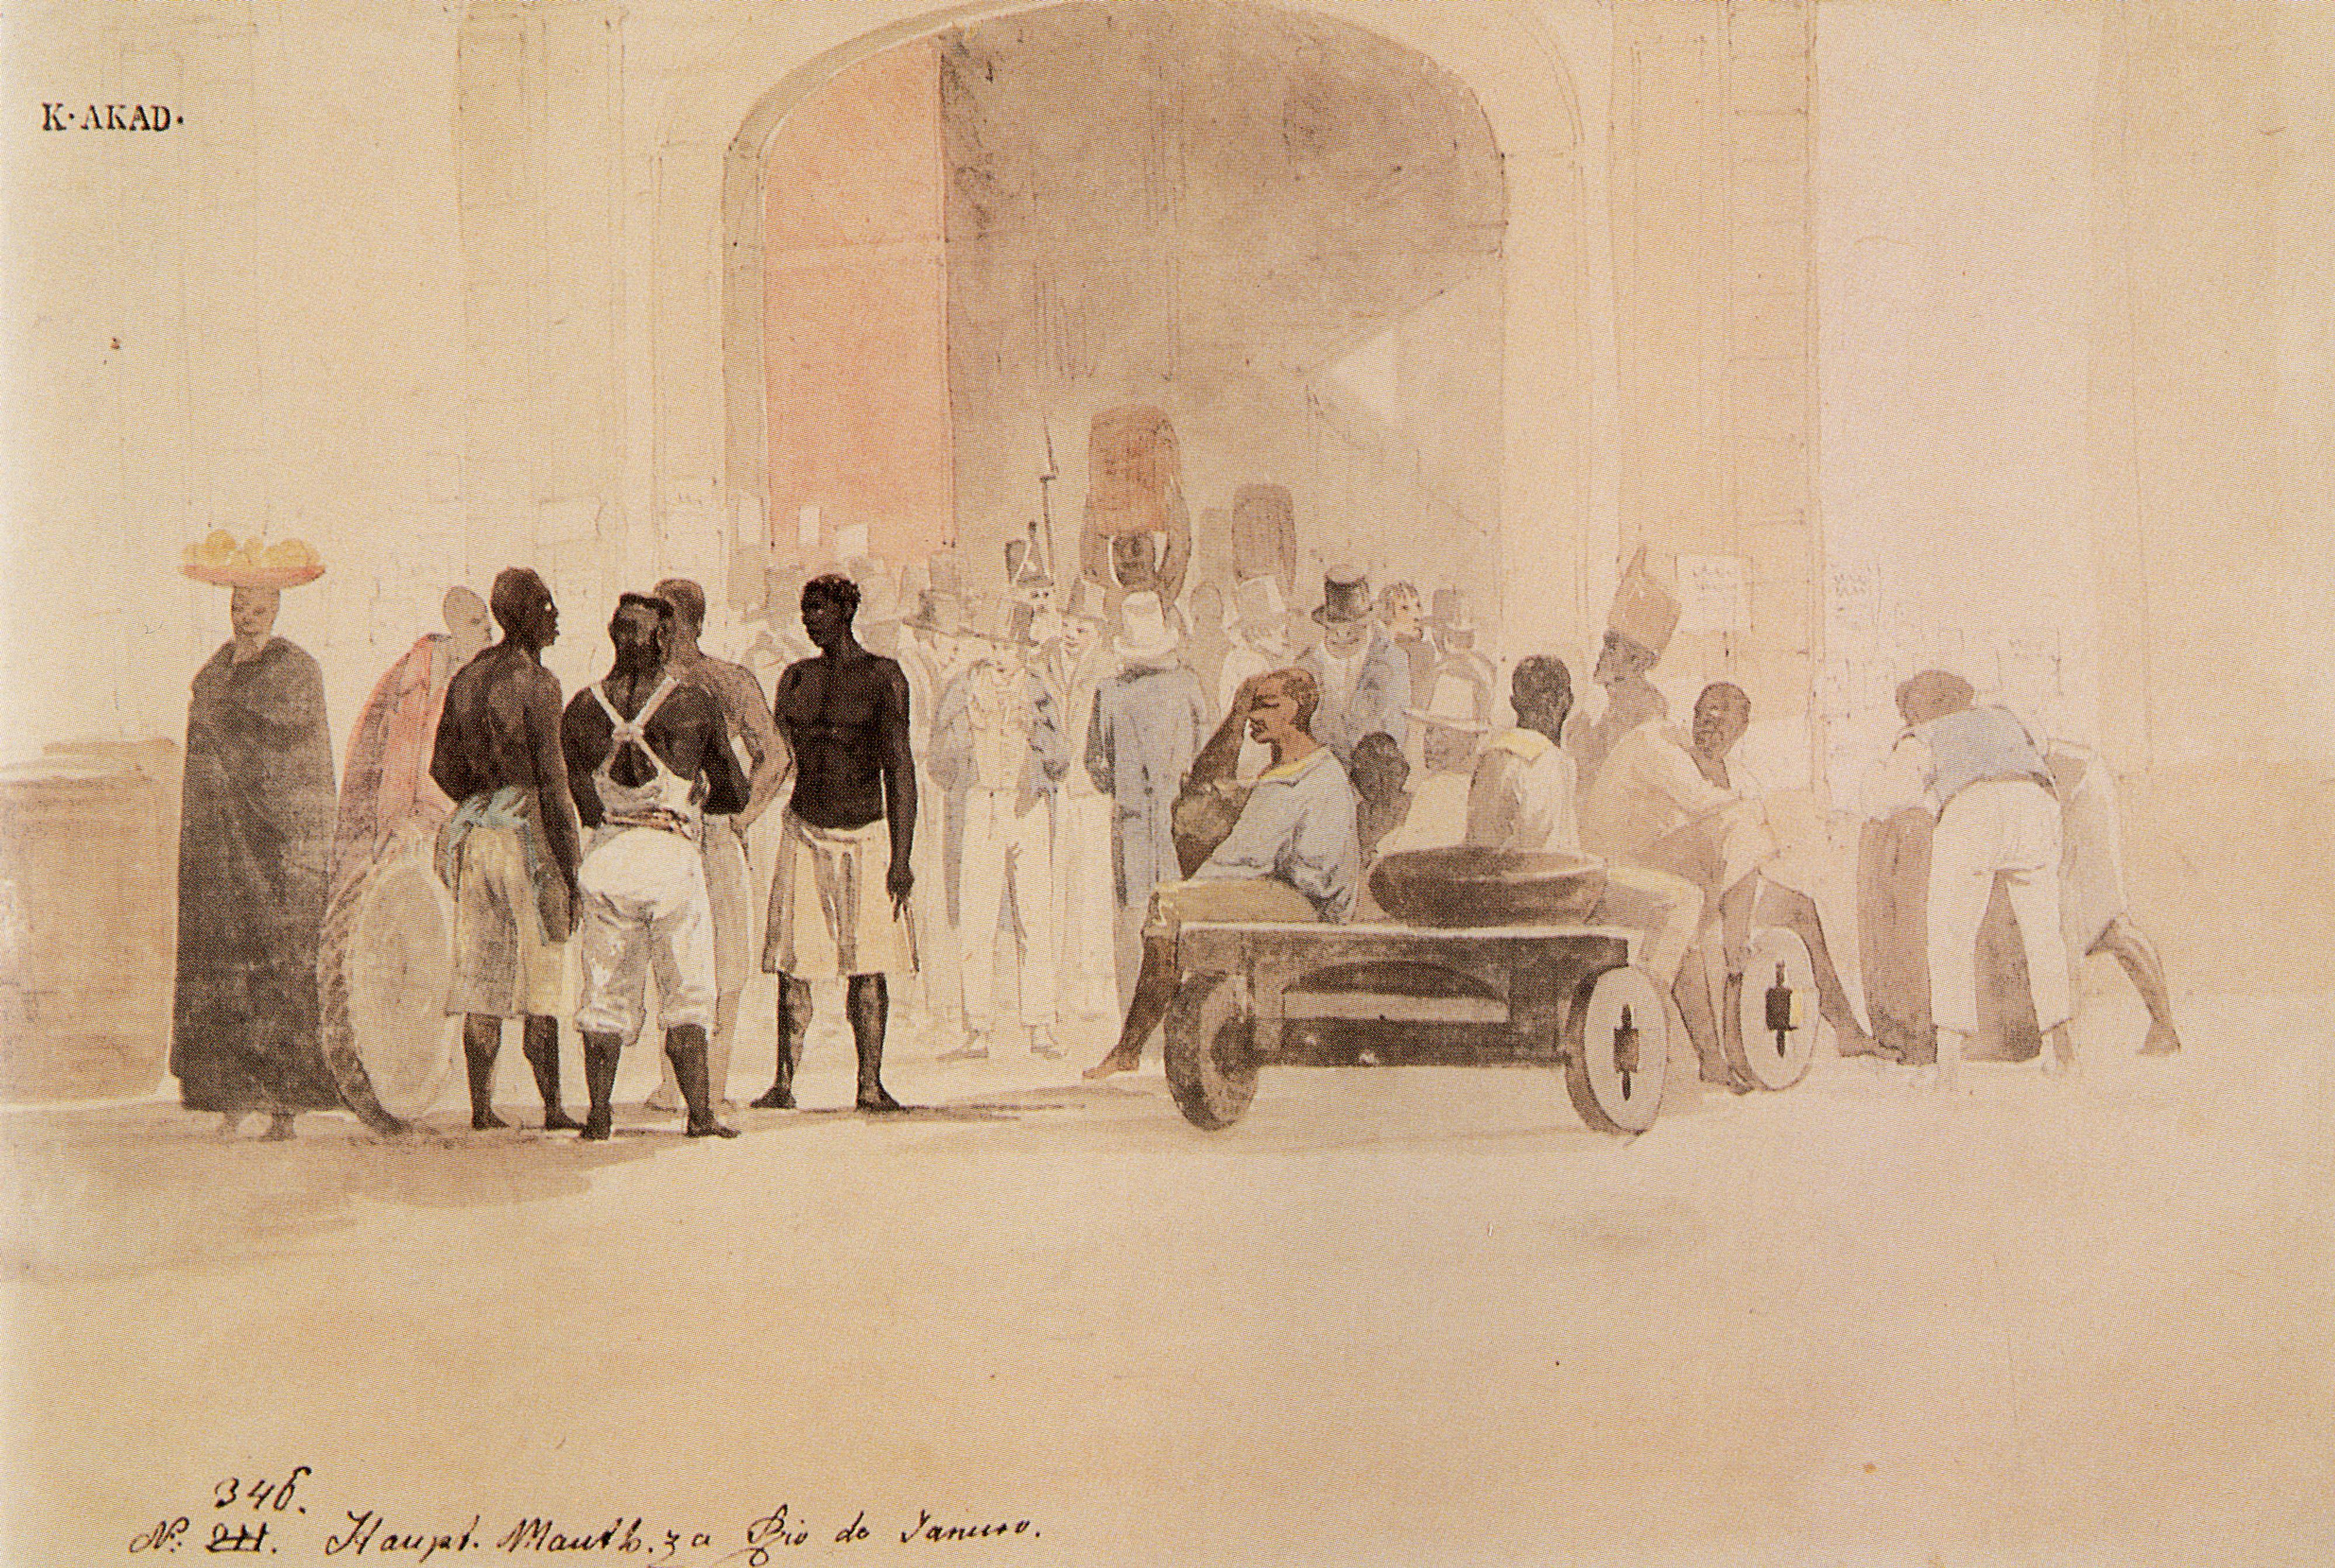 K·AKAD·
346.
No. 211. Haupt. Mauth. za Rio de Janeiro.